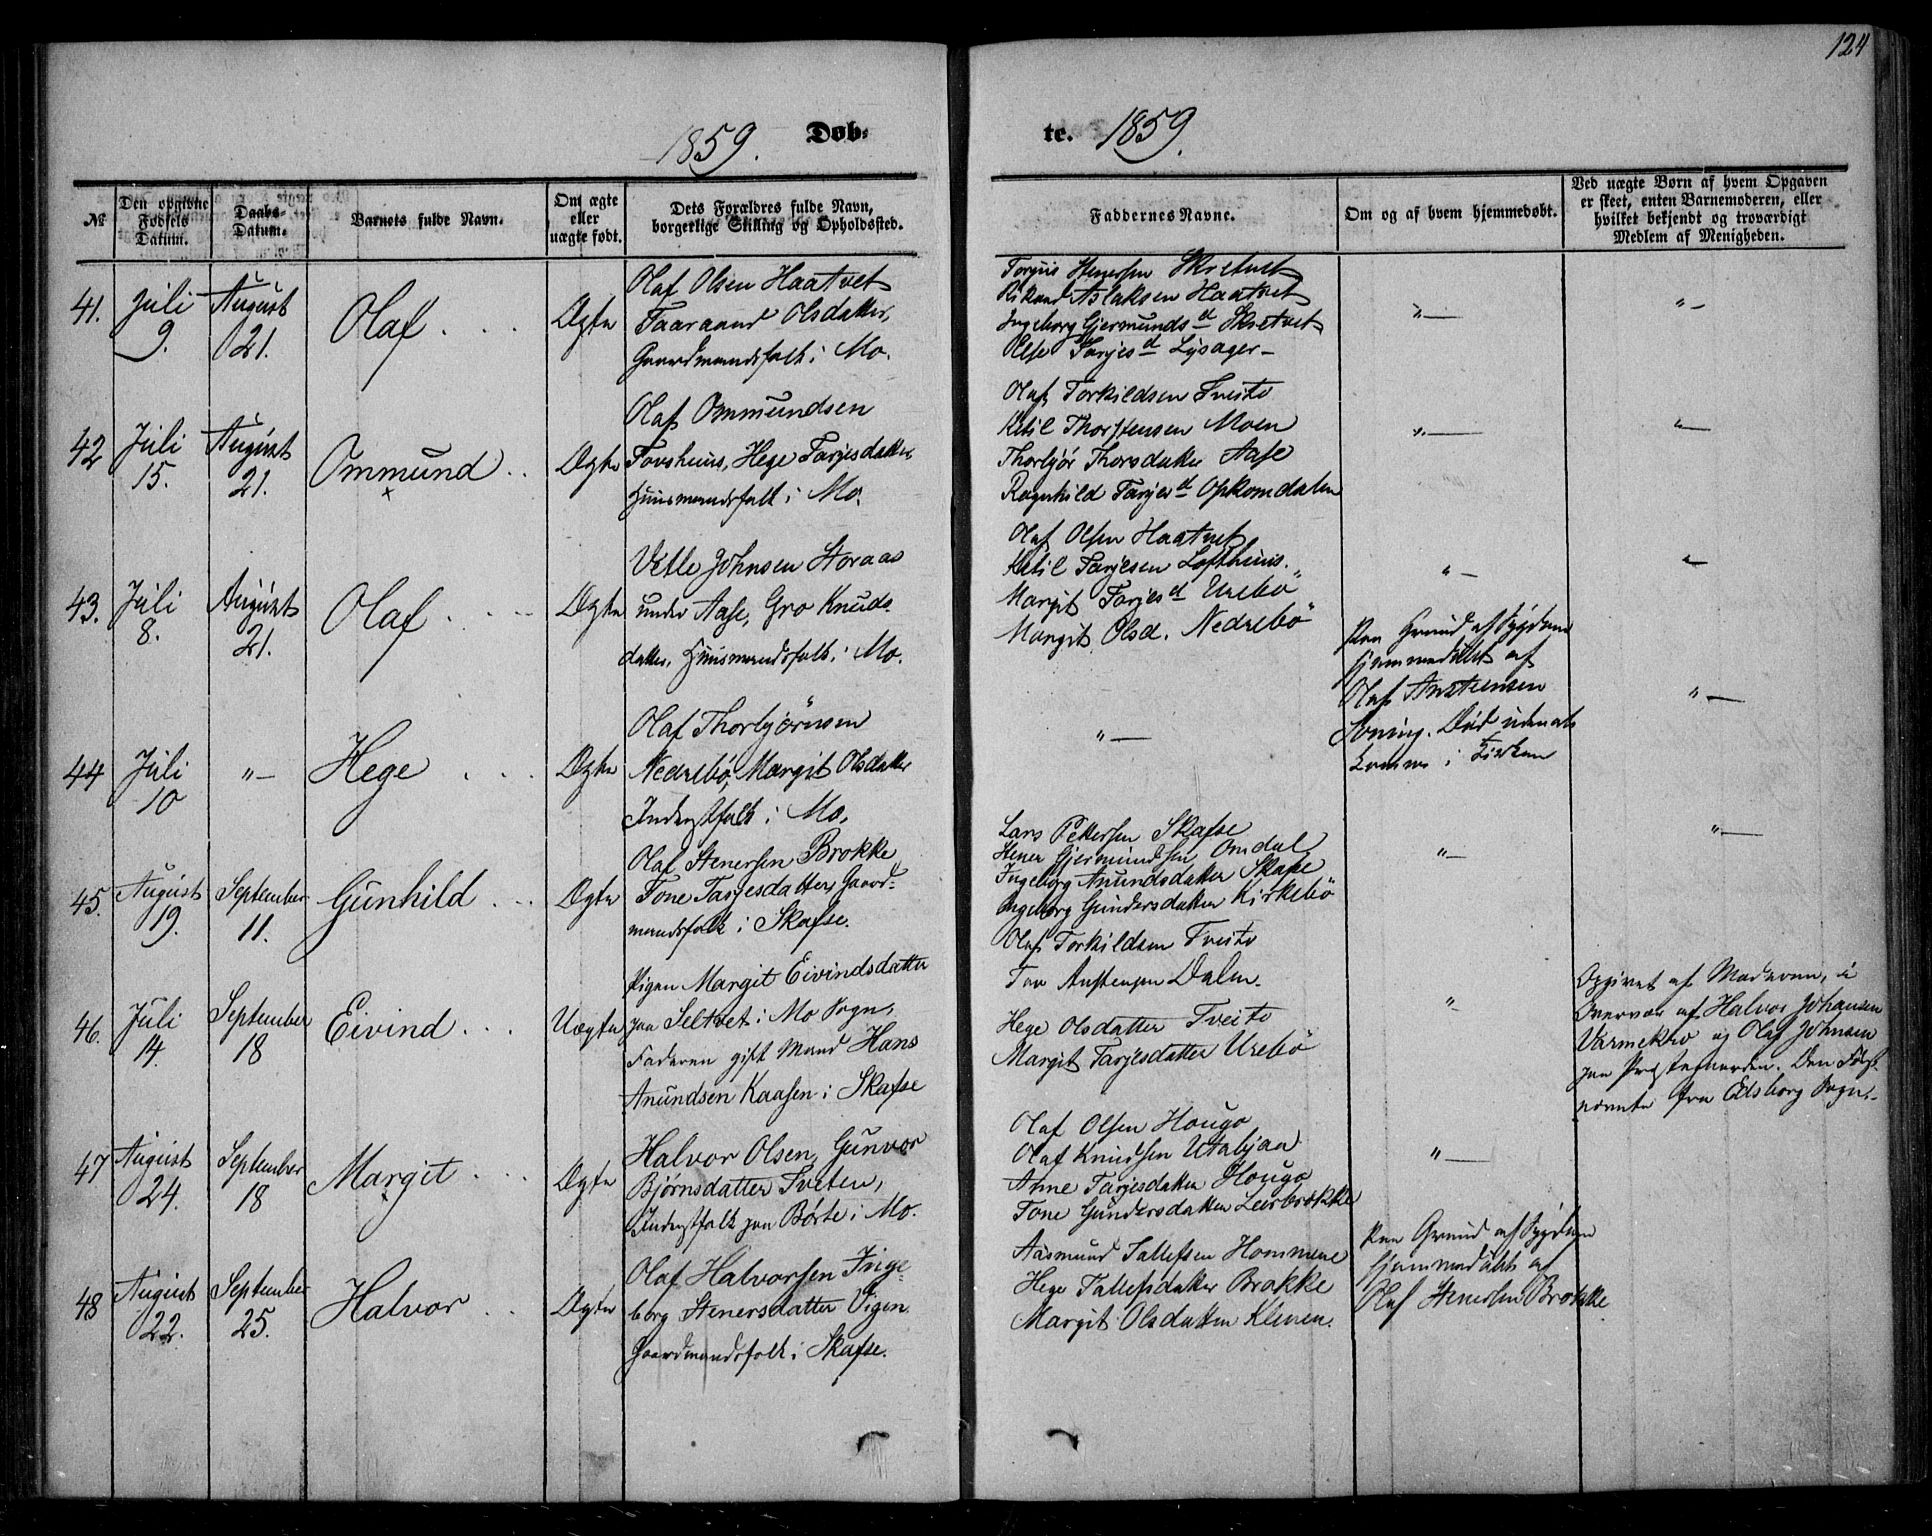 124
1859. Døb-
te. 1859.
No
Den opgivne Fødsels Datum.
Daabs-Datum.
Barnets fulde Navn.
Om ægte eller uægte født.
Dets Forældres fulde Navn, borgerlige Stilling og Opholdssted.
Faddernes Navne.
Om og af hvem hjemmedøbt.
Ved uægte Børn af hvem Opgaven er skeet, enten Barnemoderen, eller hvilket bekjendt og troværdigt Medlem af Menigheden.
41. Juli 9. August 21. Olaf. Ægte
Olaf Olsen Haatvet
Taaraand Olsdatter,
Gaardmandsfolk i Mo.
Torjuus Stenersen Skretvet
Rikard Aslaksen Haatvet
Ingeborg Gjermundsd Skretvet
Else Tarjesd Lysager
"—
"—
42 Juli 15. August 21. Ommund Ægte
Olaf Ommundsen
Tovshuus, Hege Tarjesdatter,
Huusmandsfolk i Mo.
Olaf Torkildsen Tveito
Ketil Thorstensen Moen
Thorbjør Thorsdatter Aase
Ragnhild Tarjesd Opkomdalen
"—
"—
43. Juli 8. August 21. Olaf Ægte
Vetle Johnsen Storaas
under Aase, Gro Knuds-
datter, Huusmandsfolk i Mo.
Olaf Olsen Haatvet
Ketil Tarjesen Lofthuus.
Margit Tarjesd Urebø
Margit Olsd. Nedrebø
"—
"—
44 Juli 10 "— Hege Ægte
Olaf Thorbjørnsen
Nedrebø, Margit Olsdatter
Inderstfolk i Mo.
"—
Paa Grund af Sygdom
hjemmedøbt af
Olaf Austensen
Død uden at
komme i Kirken
"—
45. August 19. September 11. Gunhild Ægte
Olaf Stenersen Brokke
Tone Tarjesdatter, Gaard-
mandsfolk i Skafse.
Lars Pettersen Skafse
Stener Gjermundsen Omdal
Ingeborg Anundsdatter Skafse
Ingeborg Gundersdatter Kirkebø
"—
"—
46. Juli 14. September 18 Eivind Uægte
Pigen Margit Eivindsdatter
paa Seltvet i Mo Sogn,
Faderen gift Mand Hans
Anundsen Kaasen i Skafse
Olaf Torkildsen Tveito
Tov Austensen Dalen.
Hege Olsdatter Tveito
Margit Tarjesdatter Urebø
"
Opgivet af Moderen, i
Overvær af Halvor Johansen
Varmekro og Olaf Johnsen
paa Præstegaarden. Den Først-
nævnte fra Eidsborg Sogn.
47 August 24. September 18 Margit Ægte
Halvor Olsen, Gunvor
Bjørnsdatter Tveten,
Inderstfolk paa Børte i Mo.
Olaf Olsen Hougo
Olaf Knudsen Utabjaa
Anne Tarjesdatter Hougo
Tone Gundersdatter Leirbrokke
"—
48 August 22. September 25. Halvor Ægte
Olaf Halvorsen Inge-
borg Stenersdatter Vigen
Gaardmandsfolk i Skafse.
Aasmund Tallefsen Hommene
Hege Tallefsdatter Brokke
Margit Olsdatter Kleven.
Paa Grund af Sygdom
hjemmedøbt af
Olaf Stenersen Brokke